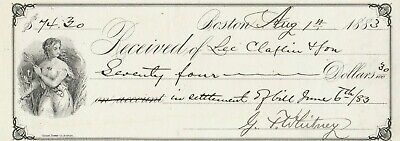 $74.30 Boston Aug 1st 1883
Received of Lee Claflin & Son
Seventy four Dollars 30/100
on account in settlement of bill June 6th/83
G. F. Whitney